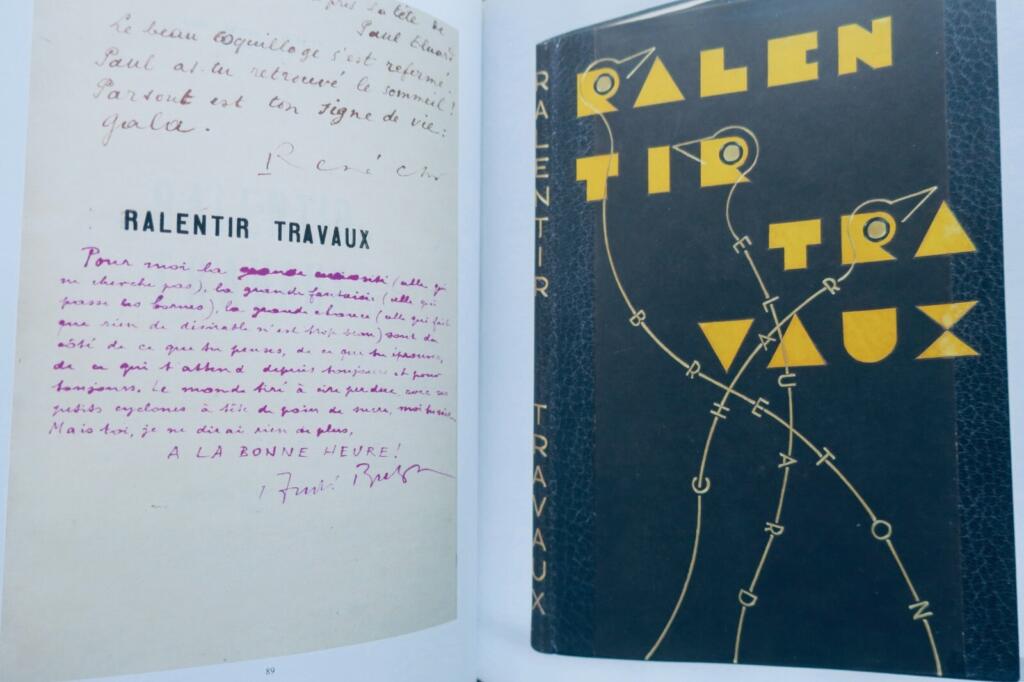 la tête de
Paul Eluard
Le beau coquillage s'est refermé.
Paul as-tu retrouvé le sommeil!
Partout est ton signe de vie:
gala.
René Char
RALENTIR TRAVAUX
Pour moi la grande (celle qui
ne cherche pas), la grande fantaisie (celle qui
passe les bornes), la grande chance (celle qui fait
que rien de désirable n'est trop beau) sont du
côté de ce que tu penses, de ce que tu éprouves,
de ce qui t'attend depuis toujours et pour
toujours. Le monde tiré à cire perdue avec ses
petits cyclones à tête de pain de sucre,
Mais toi, je ne dirai rien de plus,
A LA BONNE HEURE!
André Breton
89
RALENTIR TRAVAUX
RALEN
TIR
TRA
VAUX
BRETON
ELUARD
RHCAR